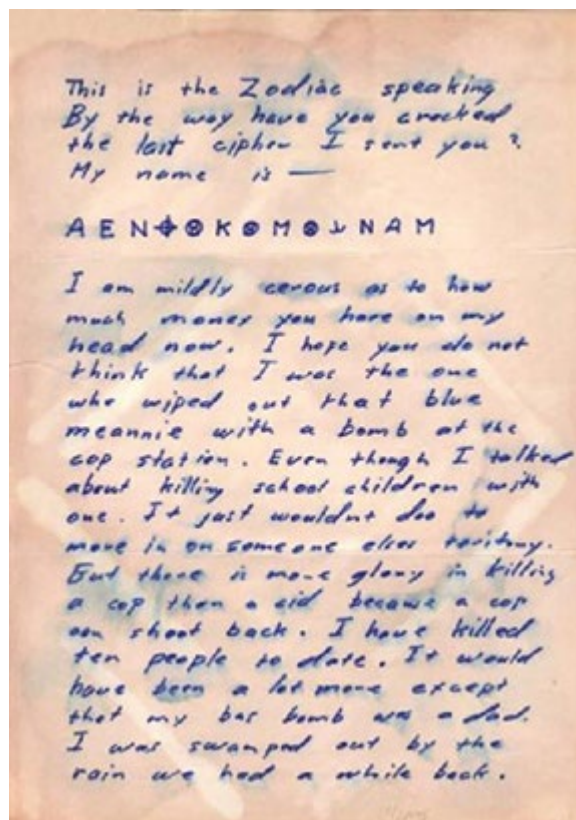 This is the Zodiac speaking
By the way have you cracked
the last cipher I sent you ?
My name is —
A E N ⌖ ⊗ K ⊗ M ⊗ ⅃ N A M
I am mildly cerous as to how
much money you have on my
head now. I hope you do not
think that I was the one
who wiped out that blue
meannie with a bomb at the
cop station. Even though I talked
about killing school children with
one. It just wouldnt doo to
move in on someone elses teritory.
But there is more glory in killing
a cop than a cid because a cop
can shoot back. I have killed
ten people to date. It would
have been a lot more except
that my bus bomb was a dud.
I was swamped out by the
rain we had a while back.